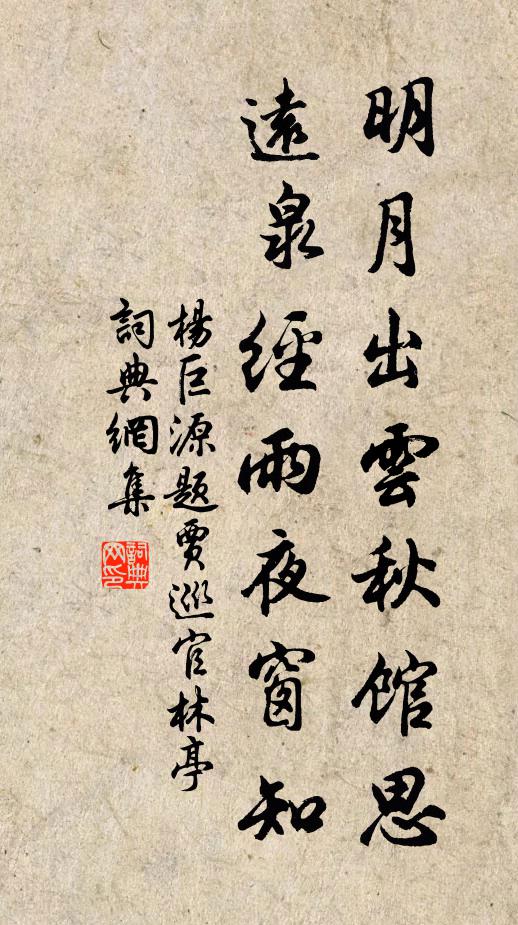 明月出雲秋館思
遠泉經雨夜窗知
楊巨源題賈巡官林亭
詞典網集
詞典網印